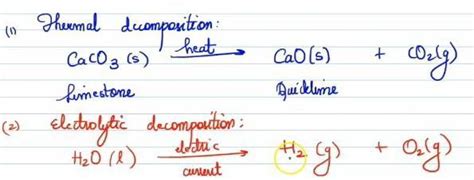 (1) Thermal decomposition:
CaCO3 (s) heat → CaO(s) + CO2(g)
Limestone Quicklime
(2) Electrolytic decomposition:
H2O (l) electric current → H2 (g) + O2(g)